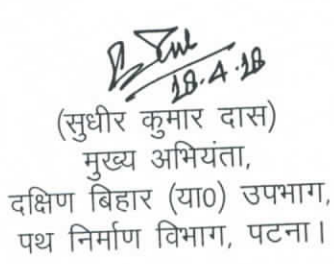 18.4.18
(सुधीर कुमार दास)
मुख्य अभियंता,
दक्षिण बिहार (या0) उपभाग,
पथ निर्माण विभाग, पटना।